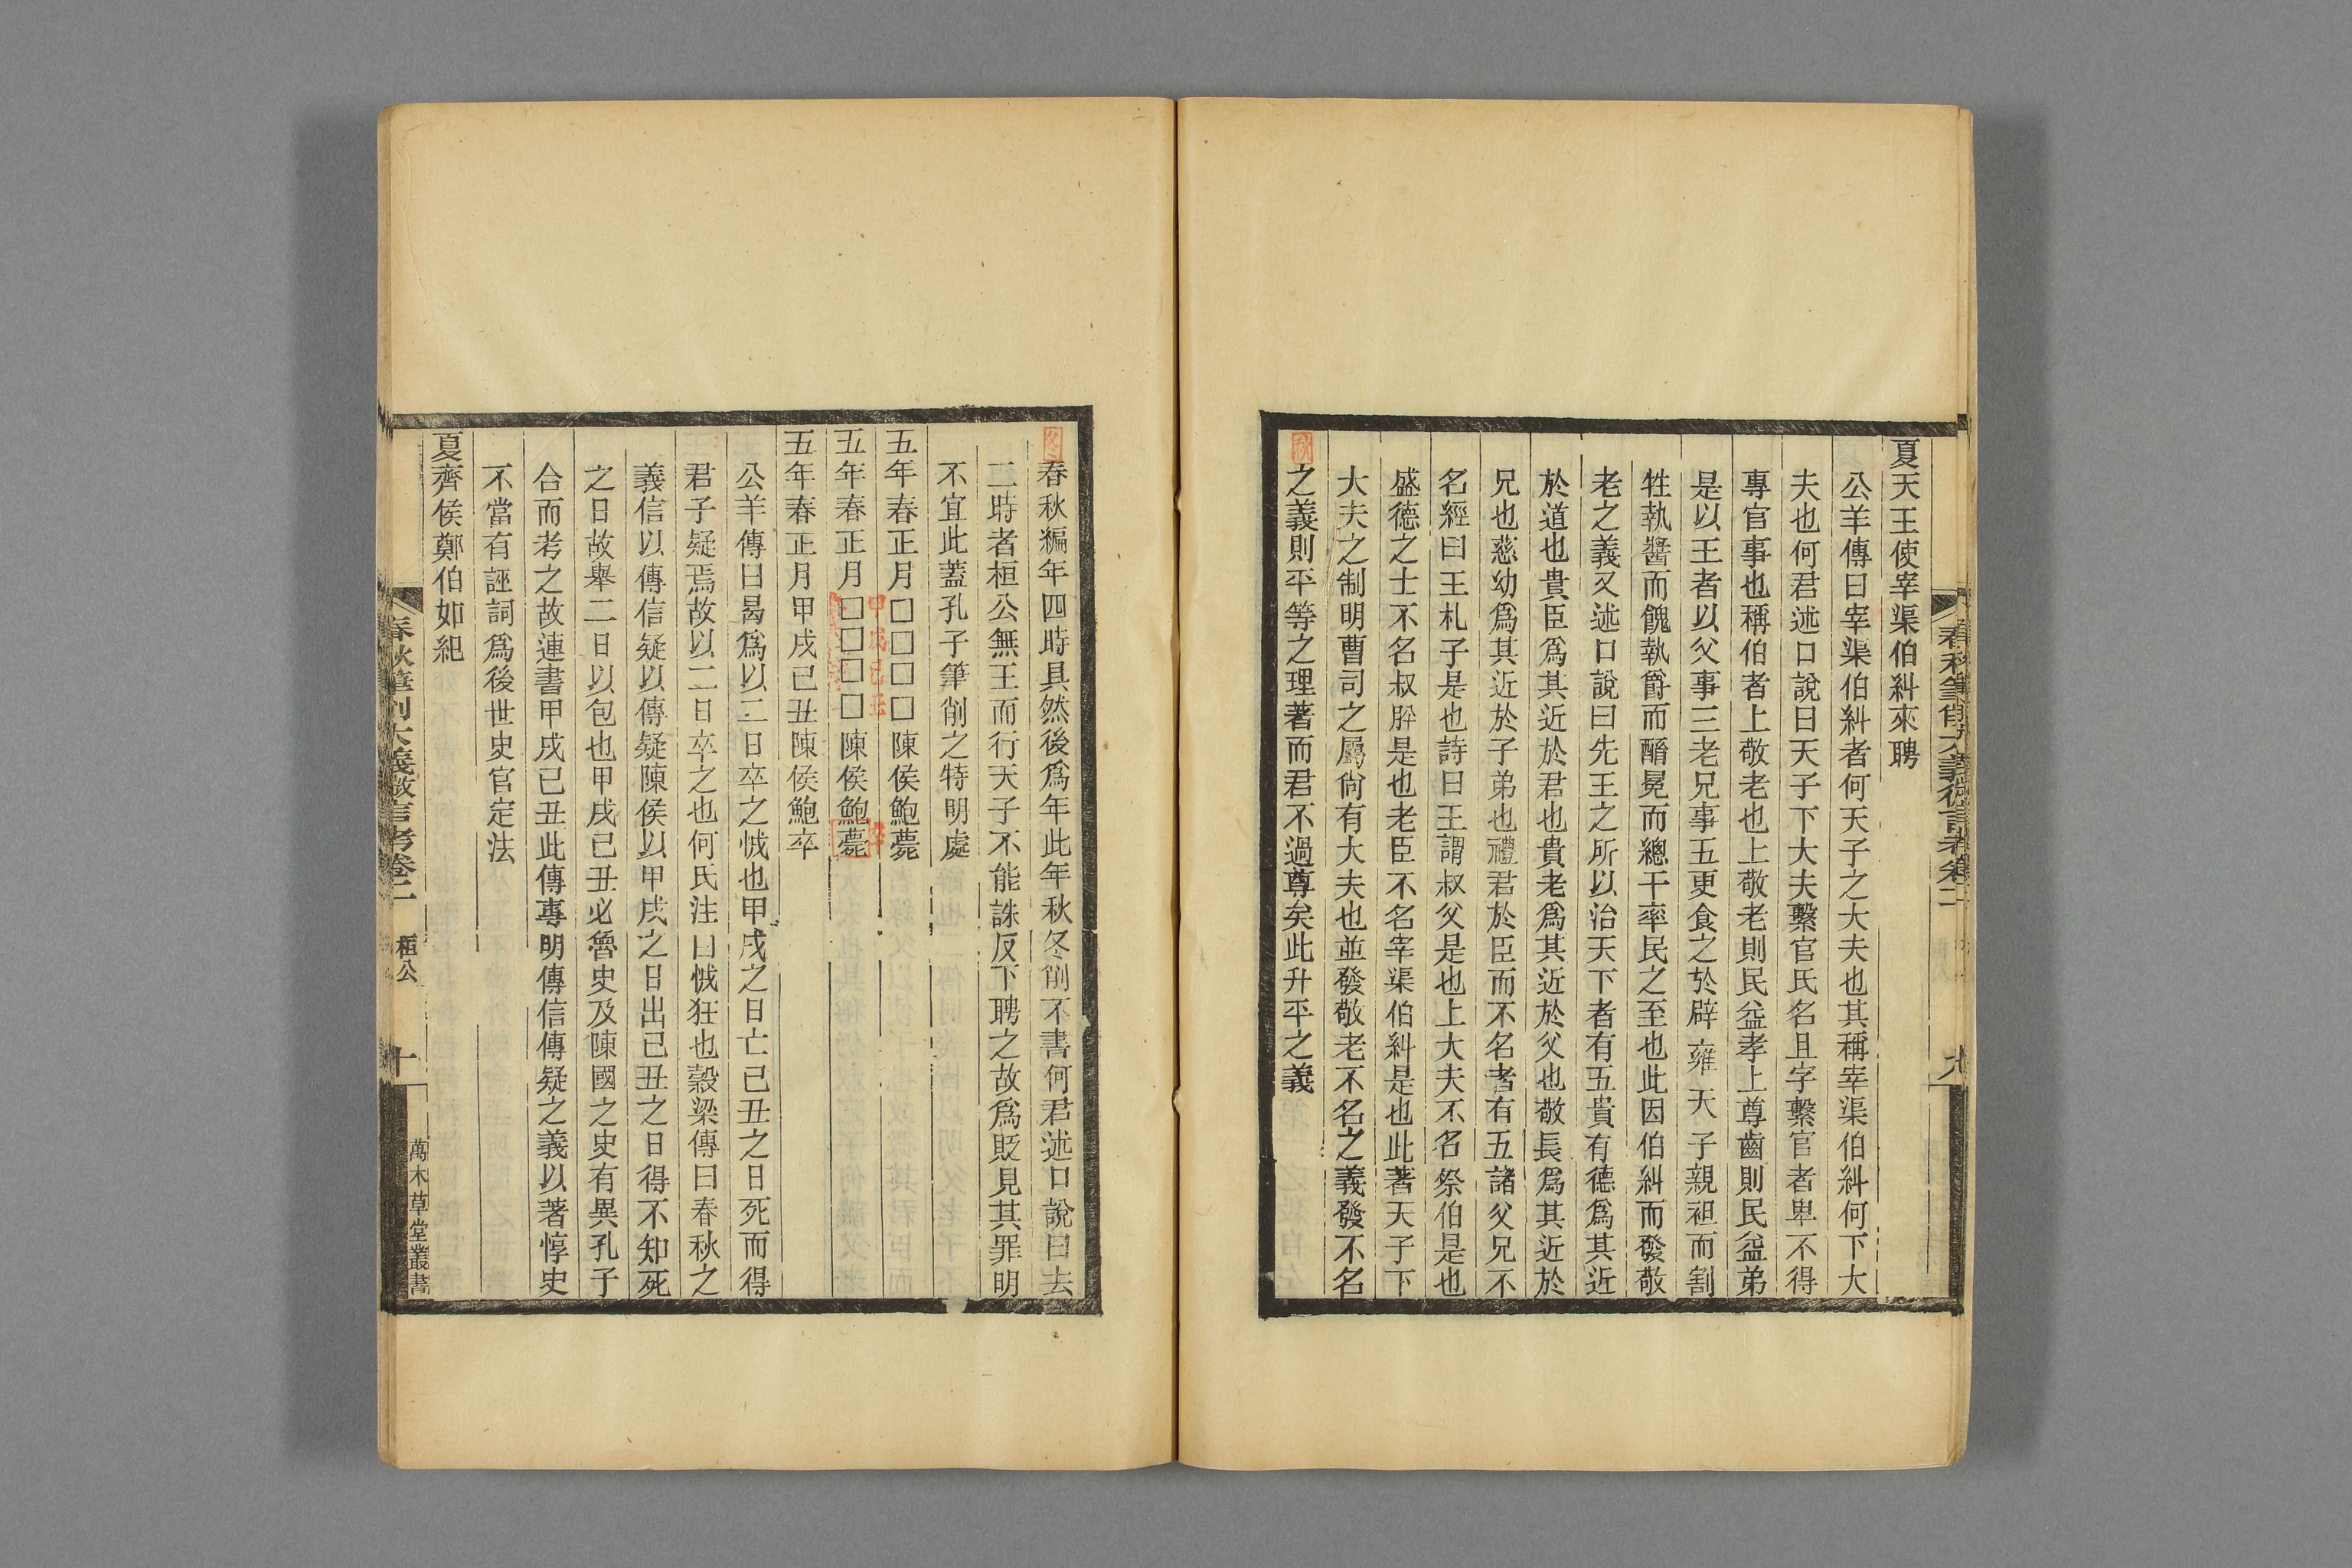 夏天王使宰渠伯糾來聘
公羊傳曰宰渠伯糾者何天子之大夫也其稱宰渠伯糾何下大
夫也何君述口說曰天子下大夫繫官氏名且字繫官者卑不得
專官事也稱伯者上敬老也上敬老則民益孝上尊齒則民益弟
是以王者以父事三老兄事五更食之於辟雍天子親袒而割
牲執醬而餽執爵而酳冕而總干率民之至也此因伯糾而發敬
老之義又述口說曰先王之所以治天下者有五貴有德爲其近
於道也貴臣爲其近於君也貴老爲其近於父也敬長爲其近於
兄也慈幼爲其近於子弟也禮君於臣而不名者有五諸父兄不
名經曰王札子是也詩曰王謂叔父是也上大夫不名祭伯是也
盛德之士不名叔肸是也老臣不名宰渠伯糾是也此著天子下
大夫之制明曹司之屬尙有大夫也並發敬老不名之義發不名
之義則平等之理著而君不過尊矣此升平之義
秋
春秋筆削大義微言考卷二
冬
春秋編年四時具然後爲年此年秋冬削不書何君述口說曰去
二時者桓公無王而行天子不能誅反下聘之故爲貶見其罪明
不宜此蓋孔子筆削之特明處
五年春正月□□□□陳侯鮑薨
甲戌己丑
卒
五年春正月□□□□陳侯鮑薨
五年春正月甲戌己丑陳侯鮑卒
公羊傳曰曷爲以二日卒之怴也甲戌之日亡己丑之日死而得
君子疑焉故以二日卒之也何氏注曰怴狂也穀梁傳曰春秋之
義信以傳信疑以傳疑陳侯以甲戌之日出己丑之日得不知死
之日故舉二日以包也甲戌己丑必魯史及陳國之史有異孔子
合而考之故連書甲戌己丑此傳專明傳信傳疑之義以著惇史
不當有誣詞爲後世史官定法
夏齊侯鄭伯如紀
春秋筆削大義微言考卷二 桓公 十 萬木草堂叢書